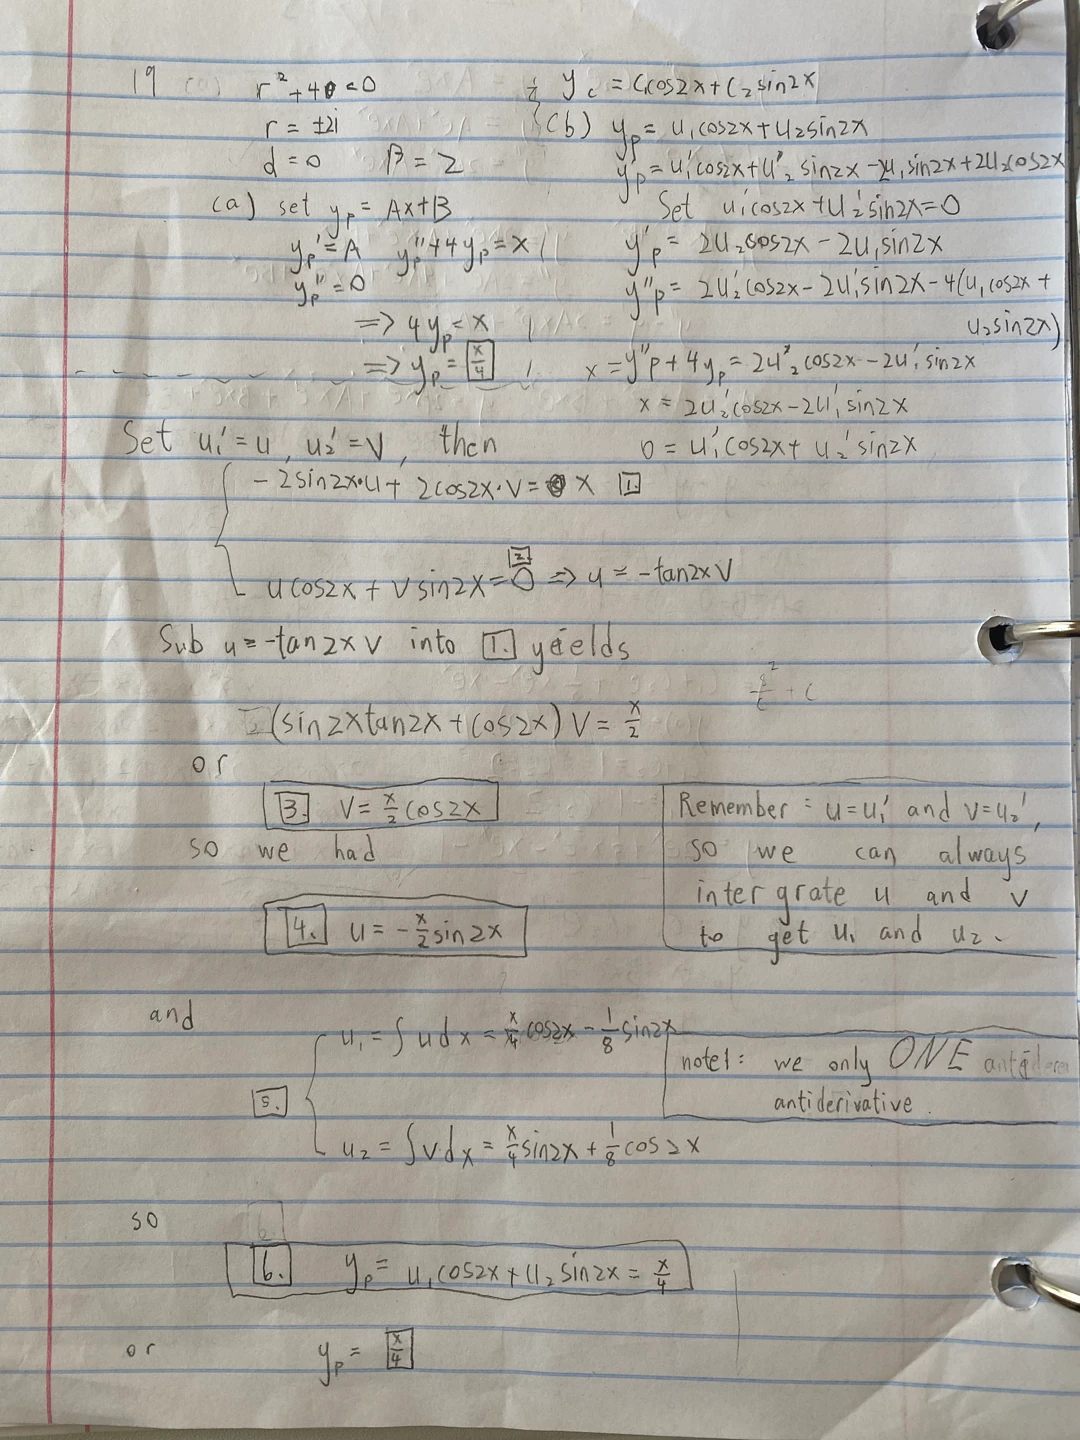 19
r² + 4 = 0
r = ±2i
d = 0 β = 2
(a) set yp = Ax+B
yp' = A yp'' + 4yp = x
yp'' = 0
=> 4yp = x
=> yp = x/4
yc = C1cos2x + C2 sin2x
(b) yp = u1cos2x + u2sin2x
y'p = u1'cos2x + u2' sin2x - 2u1sin2x + 2u2cos2x
Set u1'cos2x + u2'sin2x = 0
y'p = 2u2cos2x - 2u1sin2x
y''p = 2u2'cos2x - 2u1'sin2x - 4(u1cos2x +
u2sin2x)
x = y''p + 4yp = 2u2'cos2x - 2u1'sin2x
x = 2u2'cos2x - 2u1'sin2x
0 = u1'cos2x + u2'sin2x
Set u1' = u, u2' = v, then
-2sin2x·u + 2cos2x·v = x 1.
u cos2x + v sin2x = 0 2. => u = -tan2x v
Sub u = -tan2x v into 1. yeilds
(sin2xtan2x + cos2x) v = x/2
or
3. v = x/2 cos2x
so we had
4. u = -x/2 sin2x
Remember: u = u1' and v = u2',
so we can always
intergrate u and v
to get u1 and u2.
and
u1 = ∫udx = x/4 cos2x - 1/8 sin2x
note1: we only ONE
antiderivative.
5.
u2 = ∫vdx = x/4 sin2x + 1/8 cos2x
so
6. yp = u1cos2x + u2 sin2x = x/4
or yp = x/4